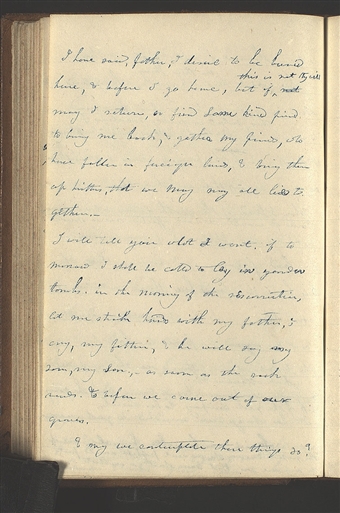 I have said, father, I desire to be buried
this is not thy will
here, & before I go home, but if, not
may I return, or find some kind friend
to bring me back, & gather my friends, who
have fallen in foreign lands, & bring them
up hither, that we may all lie to
gether.—
I will tell you what I want. if to
morrow I shall be called to lay in yonder
tomb. in the morning of the resurrection,
let me strike hands with my father, &
cry, my father, & he will say my
son, my son,— as soon as the rock
rends. & before we come out of our
graves.
& may we contemplate these things so?